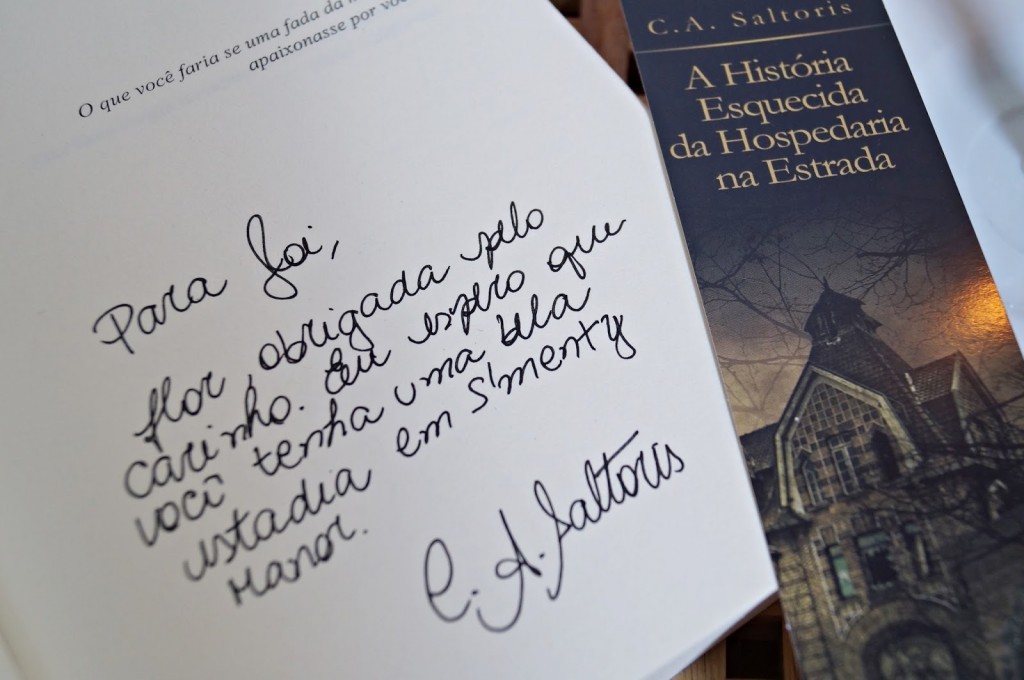 O que você faria se uma fada da
apaixonasse por você
Para Joi,
flor, obrigada pelo
carinho. Eu espero que
você tenha uma bela
estadia em S'menty
Manor.
C. A. Saltoris
C.A. Saltoris
A História
Esquecida
da Hospedaria
na Estrada